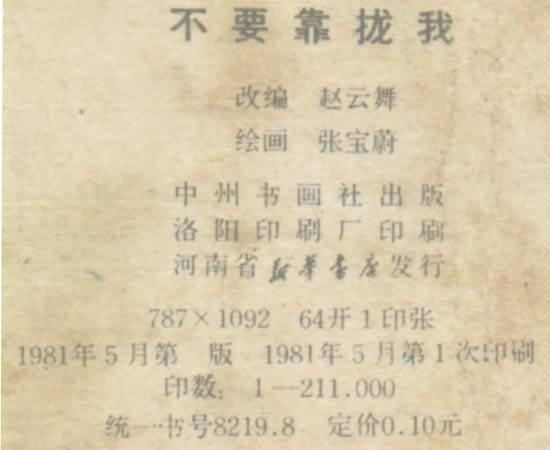 不要靠拢我
改编 赵云舞
绘画 张宝蔚
中州书画社出版
洛阳印刷厂印刷
河南省新华书店发行
787×1092 64开1印张
1981年5月第 版 1981年5月第1次印刷
印数：1—211.000
统一书号8219.8 定价0.10元